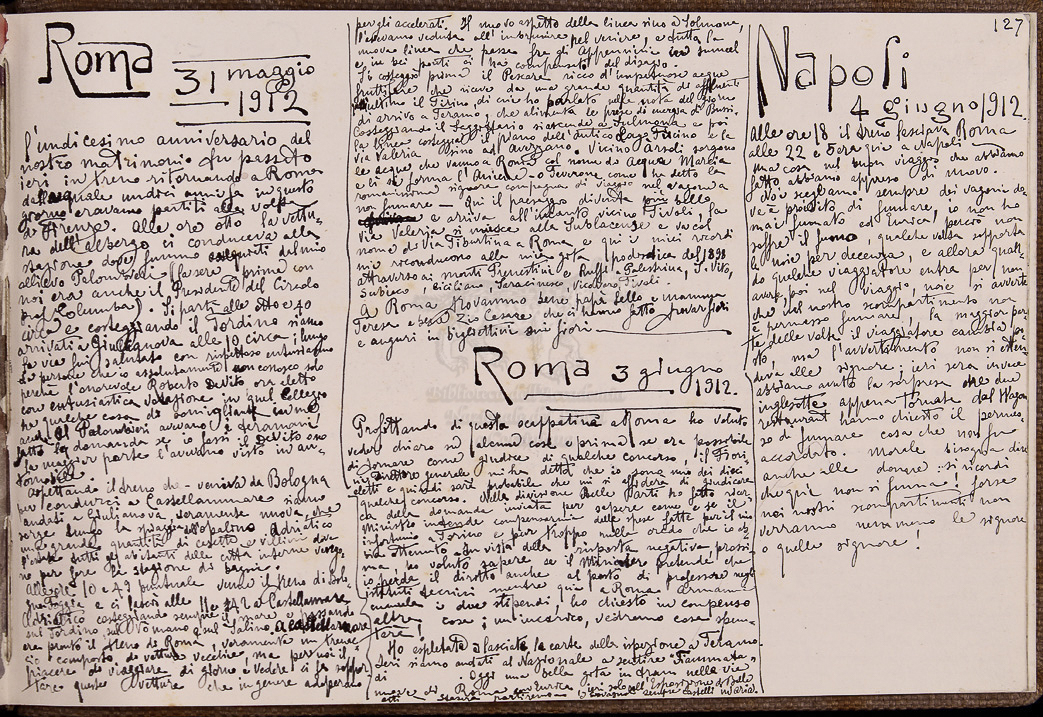 127
Roma
31 maggio
1912
L'undicesimo anniversario del
nostro matrimonio fu passato
ieri in treno ritornando a Roma
dalla quale undici anni fa in questo
giorno eravamo partiti alla volta
di Firenze. Alle ore otto la vettu-
ra dell'albergo ci conduceva alla
stazione dove fummo ossequiati dal mio
allievo Palombieri (la sera prima con
noi era anche il Presidente del Circolo
prof. Columba). Si partì alle otto e 40
circa e costeggiando il Tordino siamo
arrivati a Giulianova alle 10 circa; lungo
la via fui salutato con rispettoso entusiasmo
da persone che io assolutamente non conosco solo
perchè l'onorevole Roberto De Vito ora eletto
con entusiastica votazione in quel Collegio
ha qualche cosa di somigliante in me,
anche il Palombieri avevano i teramani
fatto la domanda se io fossi il De Vito che
la maggior parte l'avevano visto in au-
tomobile.
Aspettando il treno che veniva da Bologna
per condurci a Castellammare siamo
andati a Giulianova, veramente nuova, che
sorge lungo la spiaggia Adriatico
una grande quantità di casette e villini dove
tutti gli abitanti delle città interne vengo-
no per fare la stagione di bagni.
Alle ore 10 e 49 puntuale venne il treno di Bolo-
gna e ci lasciò alle 11 e 42 a Castellamare
Adriatico costeggiando sempre il mare e passando
sul Tordino, sul Vomano e sul Salino. A Castellamare
era pronto il treno di Roma, veramente un treno
composto di vetture vecchie, ma per noi il
piacere di viaggiare di giorno e vedere ci fa soppor-
tare queste vetture che in genere adoperano
per gli accelerati. Il nuovo aspetto della linea sino a Solmona,
l'avevamo veduta all'imbrunire pel venire, e tutta la
nuova linea che passa fra gli Appennini
e in bei ponti ci ha compensato del disagio.
Si costeggiò prima il Pescara ricco d'impetuose acque
fruttifere che riceve da una grande quantità di affluenti
ultimo il Tirino, di cui ho parlato nella nota del giorno
di arrivo a Teramo, che alimenta le prese di energia di Bussi.
Costeggiando il Sagittario si ascende a Sulmona e poi
la linea costeggia il piano dell'antico lago Fucino e la
via Valeria sino ad Avezzano. Vicino Arsoli sorgono
le acque che vanno a Roma col nome di Acqua Marcia
e lì si forma l'Aniene o Teverone come ha detto la
romanina signora compagna di viaggio nel vagone a
non fumare - Qui il paesaggio diventa più bello
e arriva all'incanto vicino Tivoli, la
Via Valeria si unisce alla Sublacense e va col
nome di Via Tiburtina a Roma, e qui i miei ricordi
mi riconducono alla mia gita podistica del 1898
attraverso ai monti Prenestini e Ruffi a Palestrina, S. Vito,
Subiaco, Ciciliano, Saracinesco, Vicovaro, Tivoli.
A Roma trovammo bene papà Lello e mamma
Teresa e Zio Cesare che ci hanno fatto trovar fiori
e auguri in bigliettini sui fiori.
Roma 3 giugno
1912.
Profittando di questa scappatina a Roma ho voluto
veder chiaro su talune cose e prima se era possibile
di tornare come giudice di qualche concorso, il Fiori-
ni, Direttore generale mi ha detto che io sono uno dei dieci
eletti e quindi sarà probabile che mi si affiderà di giudicare
qualche concorso. Nella divisione Belle Arti ho fatto ricer-
che della domanda inviata per sapere come e se il
Ministero intende compensarmi delle spese fatte per il mio
infortunio a Torino e pur troppo nulla credo che io ab-
bia ottenuto. In vista della risposta negativa prossi-
ma, ho voluto sapere se il Ministero pretende che
io perda il diritto anche al posto di professore negli
istituti tecnici mentre qui a Roma Armanni
cumula i due stipendi, ho chiesto in compenso
altre cose; un incarico, vedremo cosa spun-
terà!
Ho espletato e lasciato le carte della ispezione a Teramo.
Ieri siamo andati al Nazionale a sentire Fiammata
di . Oggi una bella gita in tram nelle vie
nuove di Roma con Enrica, ieri solo all'Esposizione di Belle
arti stasera partiremo
Napoli
4 giugno 1912.
Alle ore 18 il treno lasciava Roma
alle 22 e 50 era qui a Napoli -
ma cosa nel super viaggio che abbiamo
fatto abbiamo appreso di nuovo.
Noi scegliamo sempre dei vagoni do-
ve è proibito di fumare, io non ho
mai fumato ed Enrica, perciò non
soffre il fumo, qualche volta sopporta
la mia per decenza, e allora quan-
do qualche viaggiatore entra per non
avere poi nel viaggio, noie si avverte
che nel nostro scompartimento non
è permesso fumare, la maggior par-
te delle volte il viaggiatore cambia po-
sto, ma l'avvertimento non si esten-
deva alle signore; ieri sera invece
abbiamo avuto la sorpresa che due
inglesotte appena tornate dal Wagon
restaurant hanno chiesto il permes-
so di fumare cosa che non fu
accordato. Morale bisogna dire
anche alle donne: si ricordi
che qui non si fuma! forse
nei nostri scompartimenti non
verranno nemmeno le signore
o quelle signore!